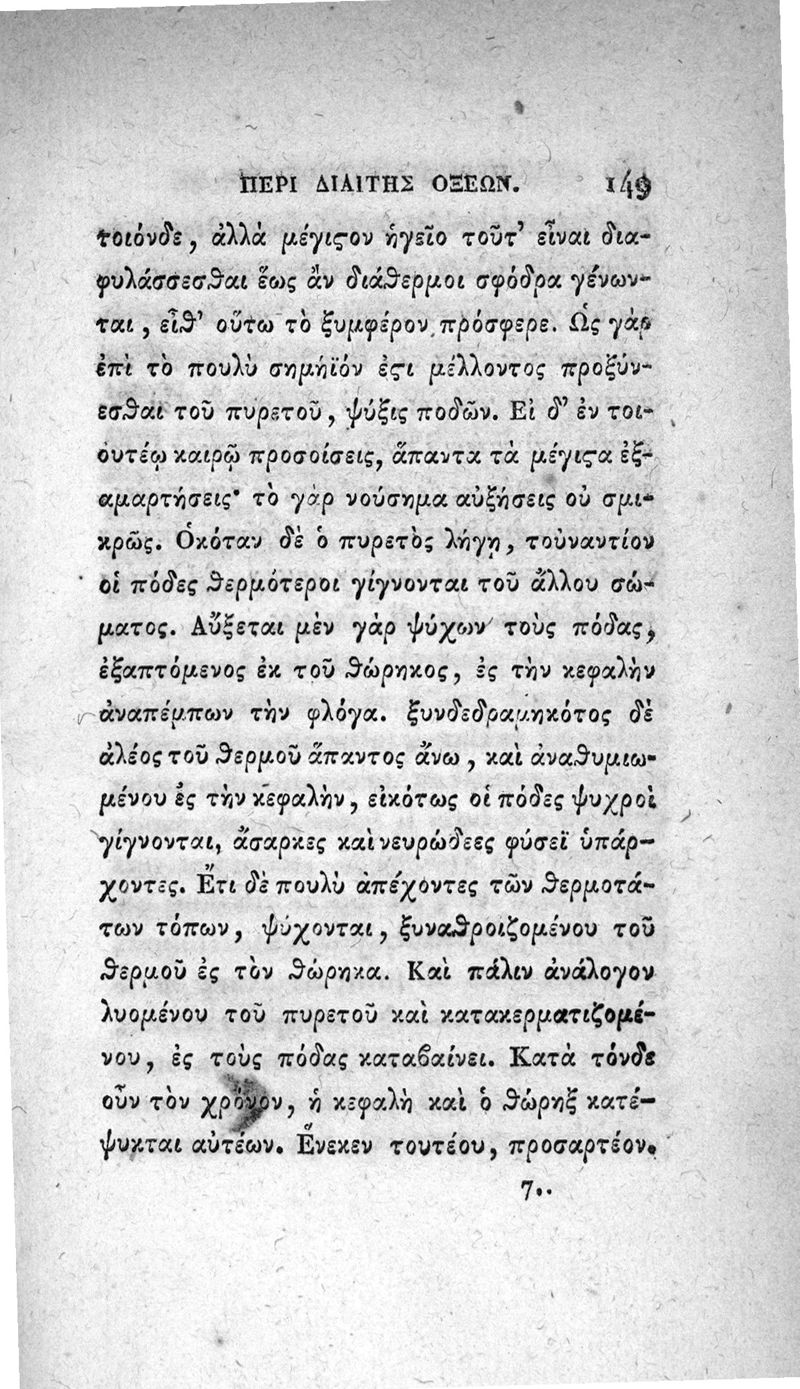 ΠΕΡΙ ΔΙΑΙΤΗΣ ΟΞΕΩΝ. 149
τοιόνδε, ἀλλὰ μέγιϛον ἡγεῖο τοῦτ' εἶναι δια-
φυλάσσεσθαι ἕως ἂν διάθερμοι σφόδρα γένων-
ται, εἶθ' οὕτω τὸ ξυμφέρον πρόσφερε. Ὡς γὰρ
ἐπὶ τὸ πουλὺ σημήϊόν ἐϛι μέλλοντος προξύν-
εσθαι τοῦ πυρετοῦ, ψύξις ποδῶν. Εἰ δ' ἐν τοι-
ουτέῳ καιρῷ προσοίσεις, ἅπαντα τὰ μέγιϛα ἐξ-
αμαρτήσεις· τὸ γὰρ νούσημα αὐξήσεις οὐ σμι-
κρῶς. Ὁκόταν δὲ ὁ πυρετὸς λήγῃ, τοὐναντίον
οἱ πόδες θερμότεροι γίγνονται τοῦ ἄλλου σώ-
ματος. Αὔξεται μὲν γὰρ ψύχων τοὺς πόδας,
ἐξαπτόμενος ἐκ τοῦ θώρηκος, ἐς τὴν κεφαλὴν
ἀναπέμπων τὴν φλόγα. ξυνδεδραμηκότος δὲ
ἀλέος τοῦ θερμοῦ ἅπαντος ἄνω, καὶ ἀναθυμιω-
μένου ἐς τὴν κεφαλὴν, εἰκότως οἱ πόδες ψυχροὶ
γίγνονται, ἄσαρκες καὶ νευρώδεες φύσεϊ ὑπάρ-
χοντες. Ἔτι δὲ πουλὺ ἀπέχοντες τῶν θερμοτά-
των τόπων, ψύχονται, ξυναθροιζομένου τοῦ
θερμοῦ ἐς τὸν θώρηκα. Καὶ πάλιν ἀνάλογον
λυομένου τοῦ πυρετοῦ καὶ κατακερματιζομέ-
νου, ἐς τοὺς πόδας καταβαίνει. Κατὰ τόνδε
οὖν τὸν χρόνον, ἡ κεφαλὴ καὶ ὁ θώρηξ κατέ-
ψυκται αὐτέων. Ἕνεκεν τουτέου, προσαρτέον.
7..